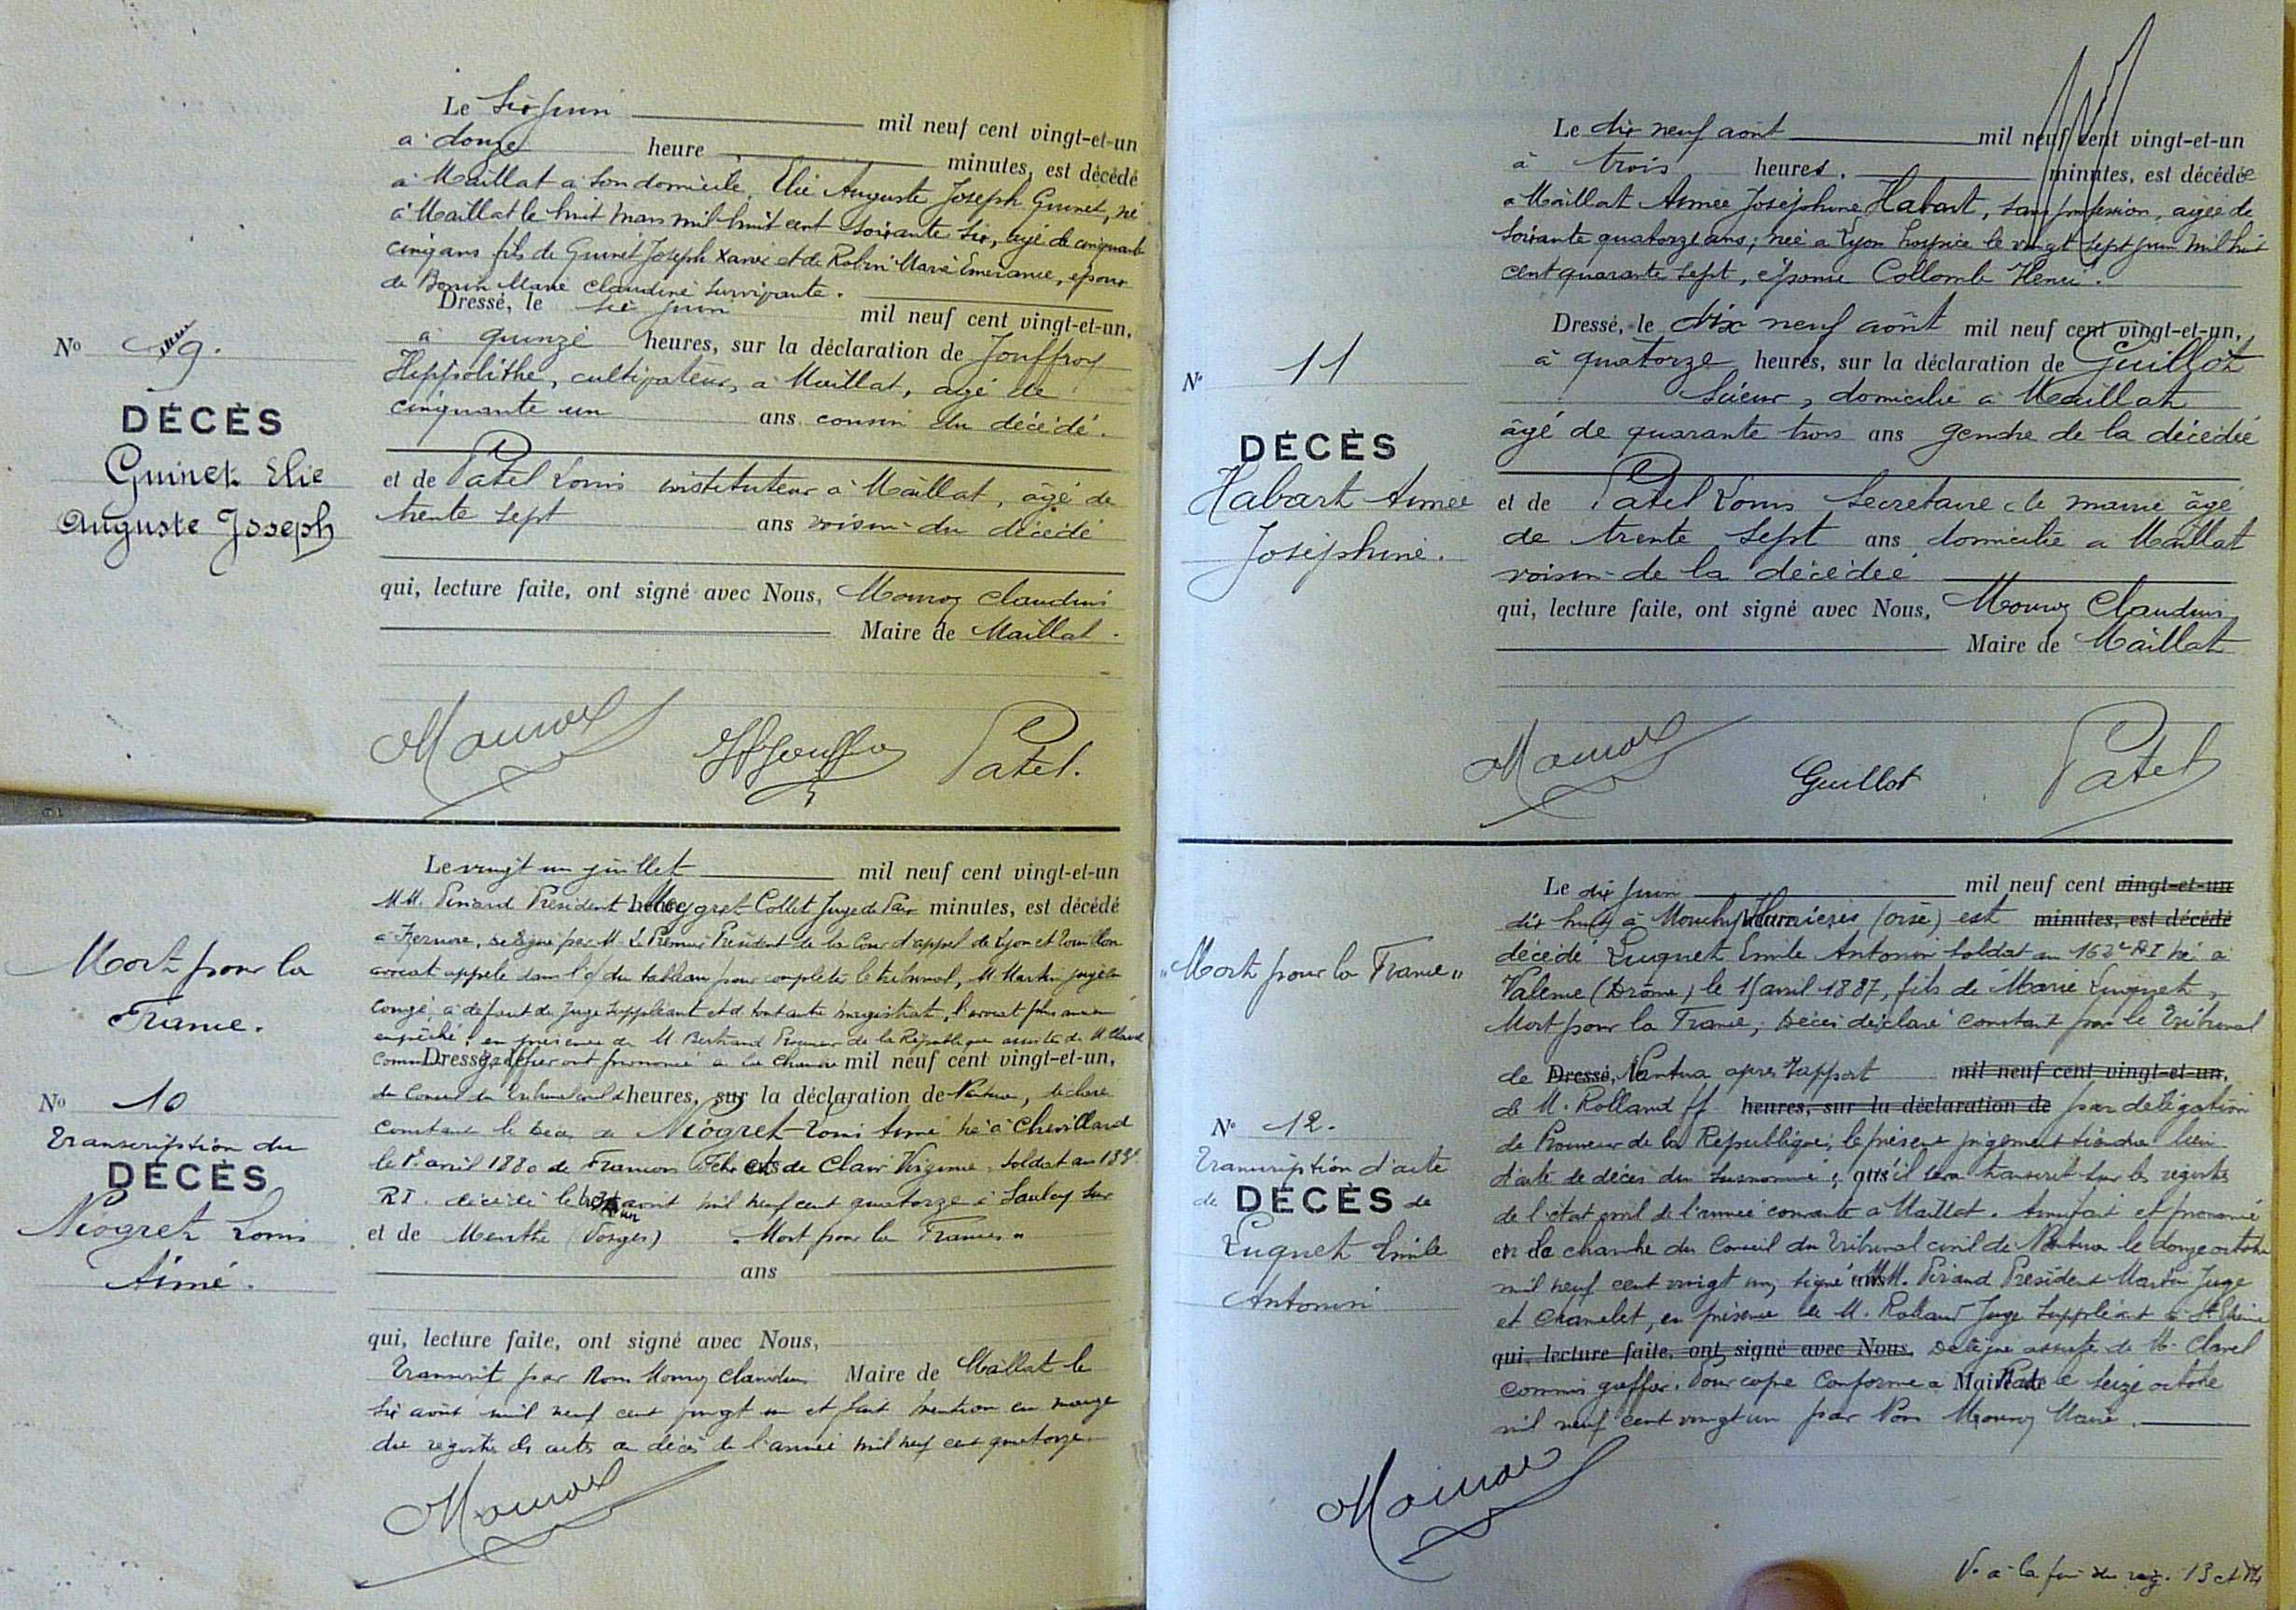 Le Six Juin mil neuf cent vingt-et-un
à douze heure minutes, est décédé
à Maillat à son domicile, Elie Auguste Joseph Guinet, né
à Maillat le huit mars mil huit cent soixante six, agé de cinquante
cinq ans fils de Guinet Joseph Xavier et de Robin Marie Emerance, époux
de Bonin Marie Claudine survivante.
Dressé, le six juin mil neuf cent vingt-et-un,
à quinze heures, sur la déclaration de Jouffroy
Hippolithe, cultivateur, à Maillat, agé de
cinquante un ans cousin du décédé.
No 9.
DÉCÈS
Guinet Elie
Auguste Joseph
et de Patel Louis instituteur à Maillat, âgé de
trente sept ans voisin du décédé
qui, lecture faite, ont signé avec Nous, Mouroz Claudius
Maire de Maillat.
Mouroz HJouffroy Patel.
Mort pour la
France.
No 10
Transcription du
DÉCÈS
Niogret Louis
Aimé.
Le vingt un juillet mil neuf cent vingt-et-un
MM. Pinard Président heure Meygret-Collet Juge de Paix minutes, est décédé
à Izernore, désigné par M. Le Premier Président de la Cour d'appel de Lyon et
avocat appelé dans l'o/ du tableau pour compléter le tribunal, M. Martin juge en
congé, à défaut de Juge suppléant et d tout autre magistrat, l'avocat plus ancien
empêché, en présence de M. Bertrand Procureur de la République assistés de M. Clavel
commis Dressé, greffier ont prononcé en la chambre mil neuf cent vingt-et-un,
du Conseil du Tribunal civil de heures, sur la déclaration de Nantua, déclare
constant le décès de Niogret Louis Aimé né à Chevillard
le 1er avril 1880 de François et de Clair Virginie soldat au
RI. décédé le août mil neuf cent quatorze à Saulcy sur
et de Meurthe (Vosges) "Mort pour la France"
ans
qui, lecture faite, ont signé avec Nous,
Transcrit par Nous Mouroz Claudius Maire de Maillat le
six août mil neuf cent vingt un et fait mention en marge
du registre des actes de décès de l'année mil neuf cent quatorze
Mouroz
Le dix neuf août mil neuf cent vingt-et-un
à trois heures. minutes, est décédée
à Maillat Aimée Joséphine Habart, sans profession, agée de
soixante quatorze ans; née à Lyon hospice le vingt sept juin mil huit
cent quarante sept, épouse Collomb Henri.
Dressé, le dix neuf août mil neuf cent vingt-et-un,
à quatorze heures, sur la déclaration de Guillot
Scieur, domicilié à Maillat
âgé de quarante trois ans gendre de la décédée
No 11
DÉCÈS
Habart Aimée
Joséphine.
et de Patel Louis secrétaire de mairie âgé
de trente sept ans domicilié à Maillat
voisin de la décédée
qui, lecture faite, ont signé avec Nous, Mouroz Claudius
Maire de Maillat
Mouroz Guillot Patel
"Mort pour la France"
No 12.
Transcription d'acte
de DÉCÈS de
Luquet Emile
Antonin
Le dix Juin mil neuf cent vingt-et-un
dix huit à Mouchy heure Humières (Oise) est minutes, est décédé
décédé Luquet Emile Antonin soldat au 162e RI né à
Valence (Drôme) le 15 avril 1887, fils de Marie Luquet,
Mort pour la France; Décès déclaré constant par le Tribunal
de Dressé, Nantua après rapport mil neuf cent vingt-et-un,
de M. Rolland ff. heures, sur la déclaration de par délégation
de Procureur de la République; le présent jugement tiendra lieu
d'acte de décès du susnommé; qu'il sera transcrit sur les registres
de l'état civil de l'année courante à Maillat. Ainsi fait et prononcé
en la chambre du Conseil du Tribunal civil de Nantua le douze octobre
mil neuf cent vingt un, signé MM. Pinard Président Martin Juge
et Chanelet, en présence de M. Rolland Juge Suppléant à St Etienne
qui, lecture faite, ont signé avec Nous, Délégué assisté de M. Clavel
commis greffier. Pour copie conforme à Maillat le seize octobre
mil neuf cent vingt un par Nous Mouroz Maire.
Mouroz
V. à la fin du reg. 13 et 14